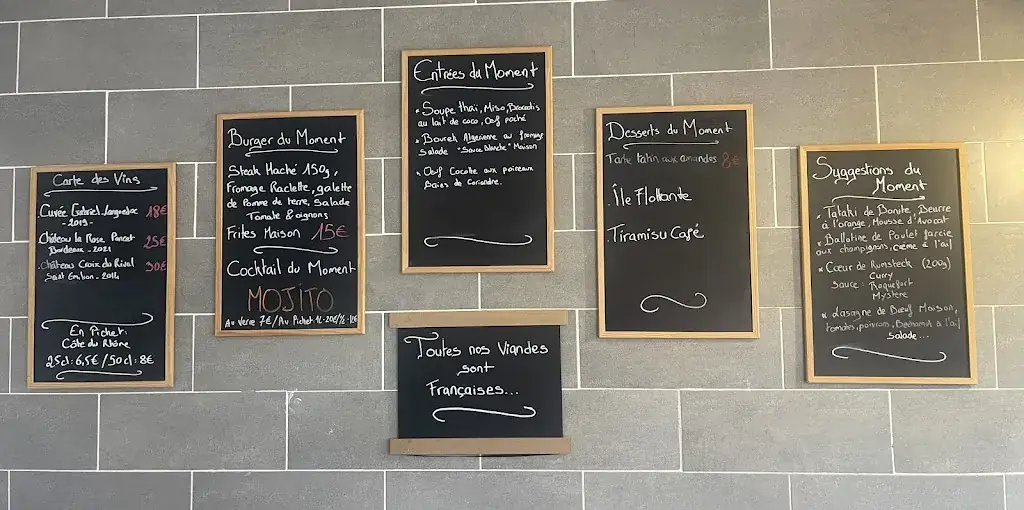 Carte des Vins
Cuvée Gabriel. Languedoc 18€
- 2019 -
Château la Rose Poncet 25€
Bordeaux - 2021
Château Croix du Rival 30€
Saint Emilion - 2014
En Pichet:
Côte du Rhône
25cl: 6,5€ / 50cl: 8€
Burger du Moment
Steak Haché 150g,
Fromage Raclette, galette
de Pomme de terre, Salade
Tomate & oignons
Frites Maison 15€
Cocktail du Moment
MOJITO
Au Verre 7€ / Au Pichet 1L-20€
Entrées du Moment
* Soupe thaï, Miso, Brocolis
au lait de coco, Oeuf poché
* Bourek Algerienne au fromage
Salade "Sauce blanche" Maison
* Oeuf Cocotte aux poireaux
Baies de Coriandre.
Toutes nos Viandes
sont
Françaises...
Desserts du Moment
Tarte tatin aux amandes 8€
Île Flottante
Tiramisu Café
Suggestions du
Moment
* Tataki de Bonite, Beurre
à l'orange, Mousse d'Avocat
* Ballotine de Poulet farcie
aux champignons, crème à l'ail
* Cœur de Rumsteck (200g)
Curry
Sauce: Roquefort
Mystère
* Lasagne de Bœuf Maison,
tomates, poivrons, Bechamel à l'ail
Salade...